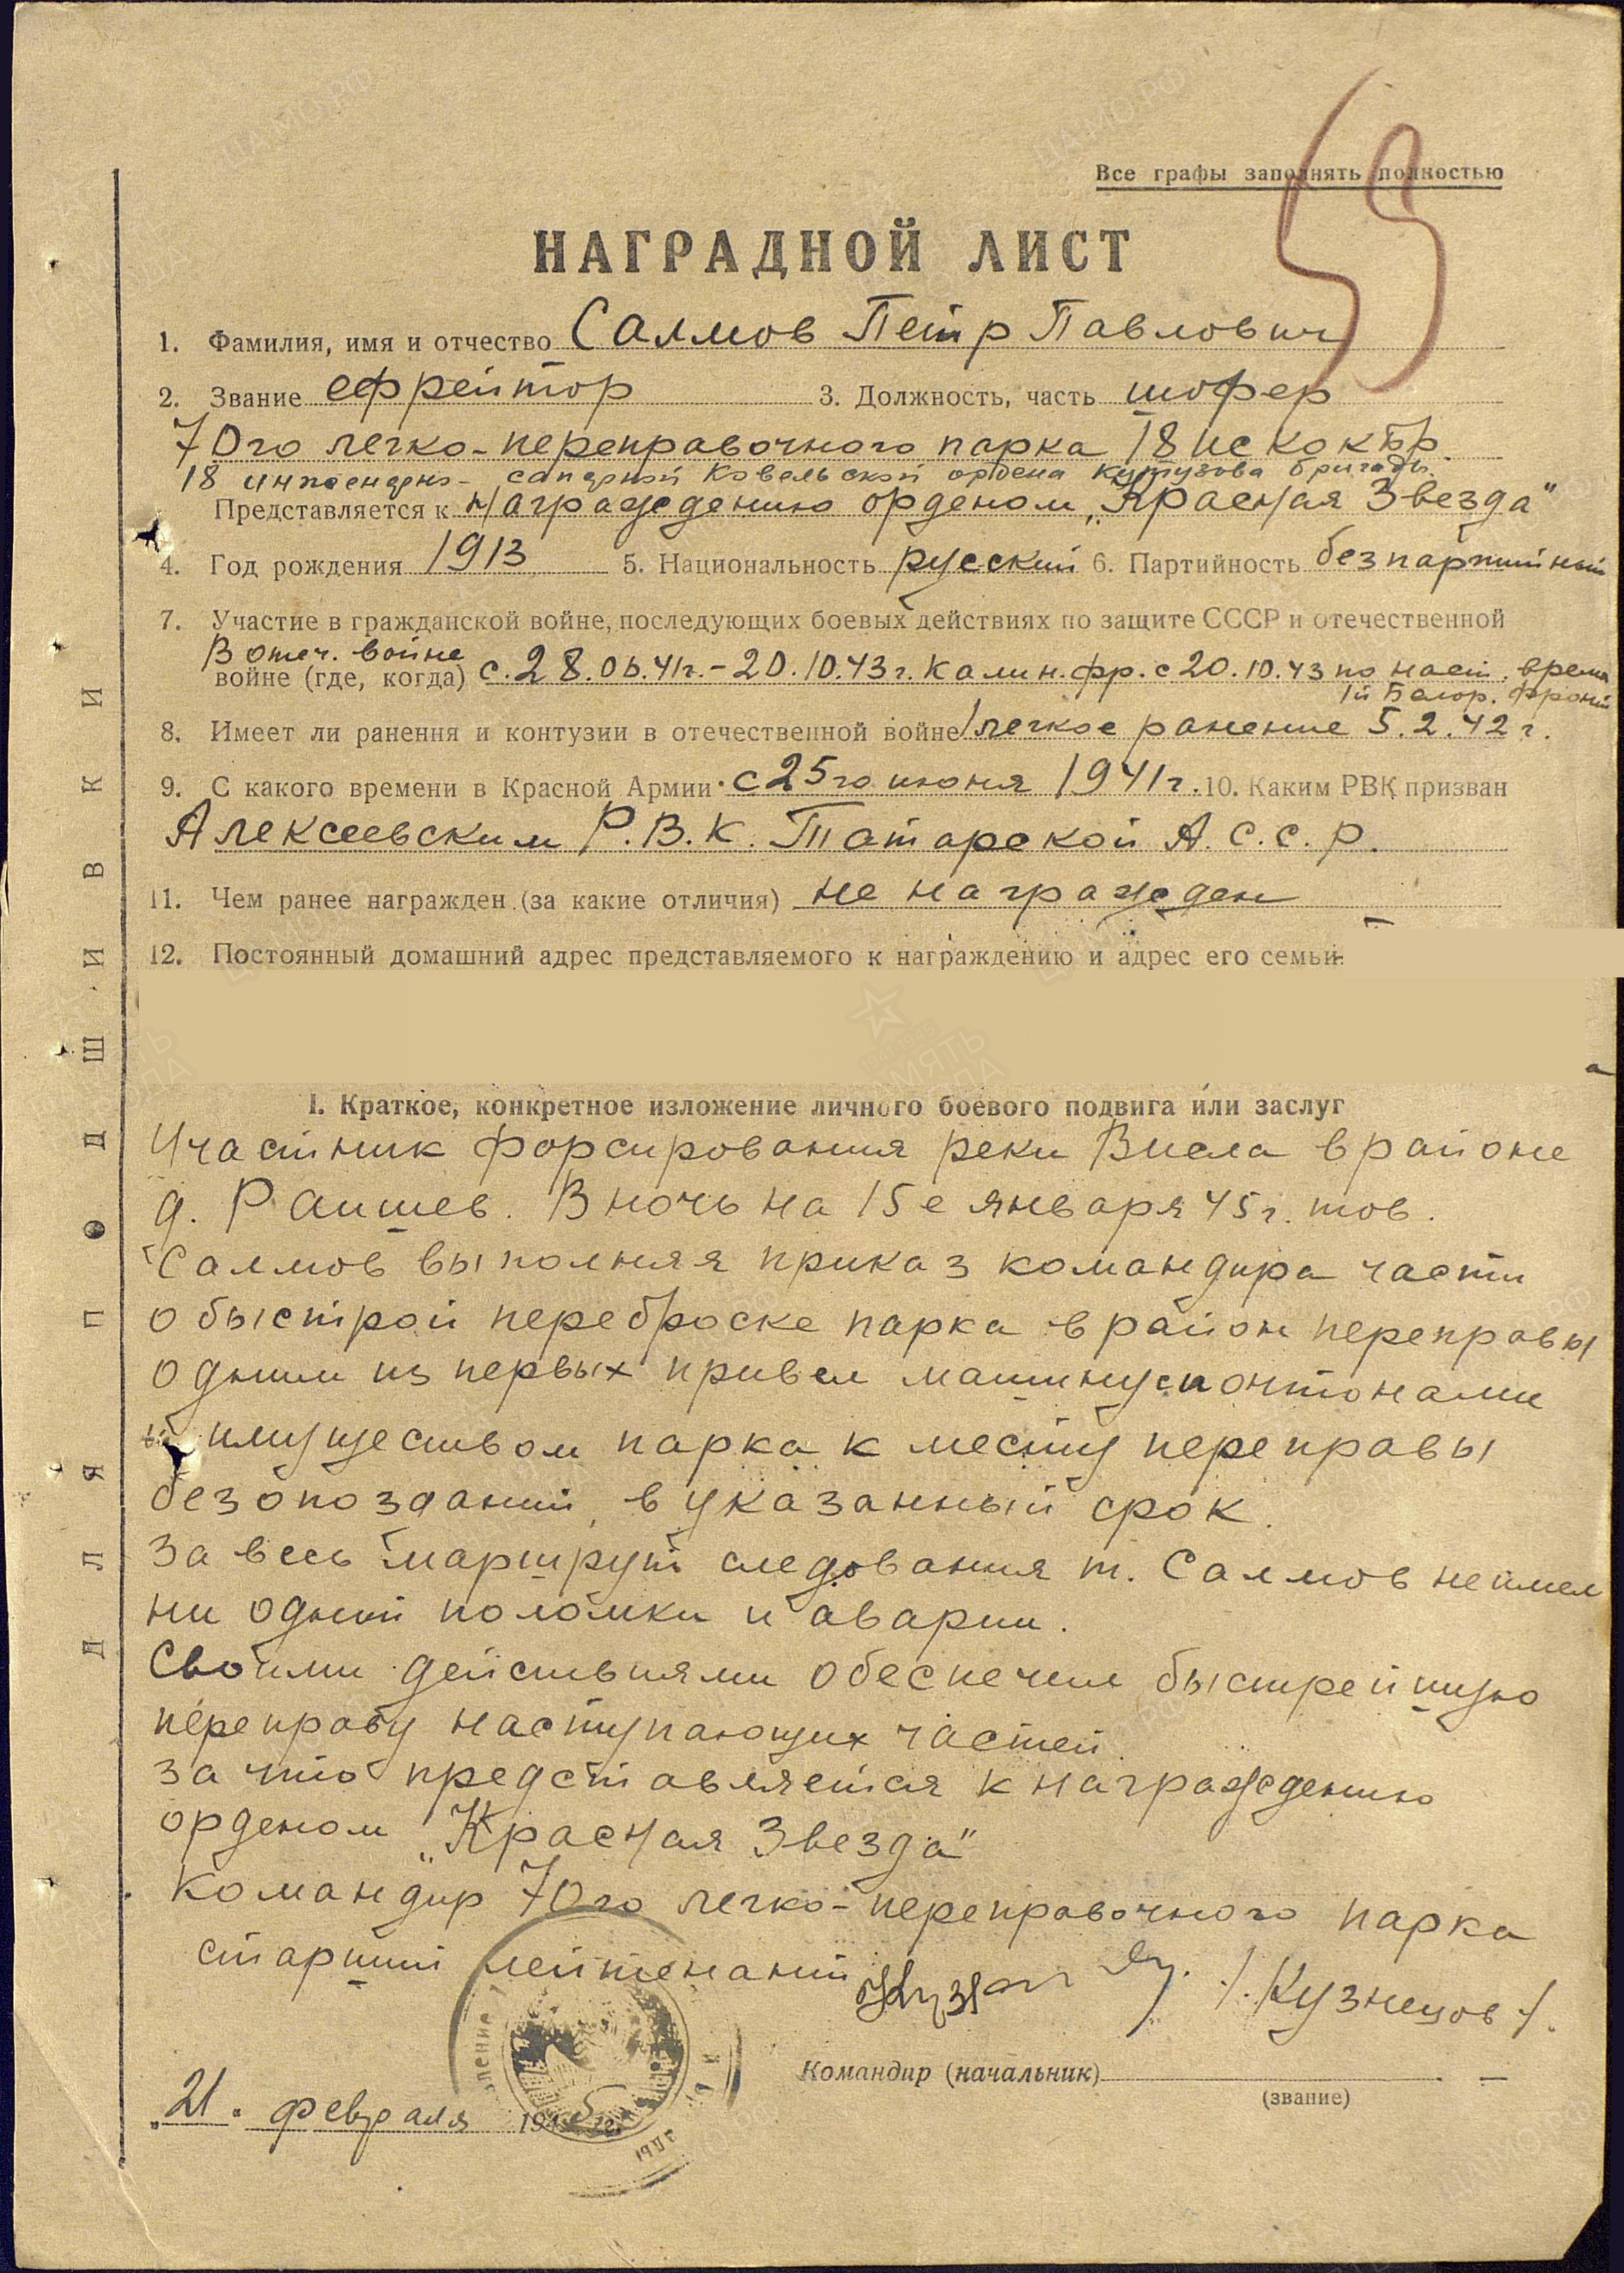 Все графы заполнять полностью
59
НАГРАДНОЙ ЛИСТ
1. Фамилия, имя и отчество Саллмов Петр Павлович
2. Звание ефрейтор 3. Должность, часть шофер
70го легко-переправочного парка 18 ис ко к бр.
18 инженерно-саперной Ковельской ордена Кутузова бригады.
Представляется к награждению орденом „Красная Звезда"
4. Год рождения 1913 5. Национальность русский 6. Партийность безпартийный
7. Участие в гражданской войне, последующих боевых действиях по защите СССР и отечественной
В отеч. войне
войне (где, когда) с. 28.06.41г.-20.10.43г. Калин. фр. с 20.10.43 по наст. время
1й Белор. фронт
8. Имеет ли ранения и контузии в отечественной войне 1 легкое ранение 5.2.42г.
9. С какого времени в Красной Армии с 25го июня 1941г. 10. Каким РВК призван
Алексеевским Р.В.К. Татарской А.С.С.Р.
11. Чем ранее награжден (за какие отличия) не награжден
12. Постоянный домашний адрес представляемого к награждению и адрес его семьи
I. Краткое, конкретное изложение личного боевого подвига или заслуг
Участник форсирования реки Висла в районе
д. Рапшев. В ночь на 15е января 45г. тов.
Саллмов выполняя приказ командира части
о быстрой переброске парка в район переправы
одним из первых привел машину с понтонами
и имуществом парка к месту переправы
без опозданий, в указанный срок.
За весь маршрут следования т. Саллмов не имел
ни одной поломки и аварии.
Своими действиями обеспечил быстрейшую
переправу наступающих частей.
за что представляется к награждению
орденом „Красная Звезда"
Командир 70го легко-переправочного парка
старший лейтенант /Кузнецов/.
Командир (начальник)
(звание)
„21" февраля 1945 г.
ДЛЯ ПОДШИВКИ